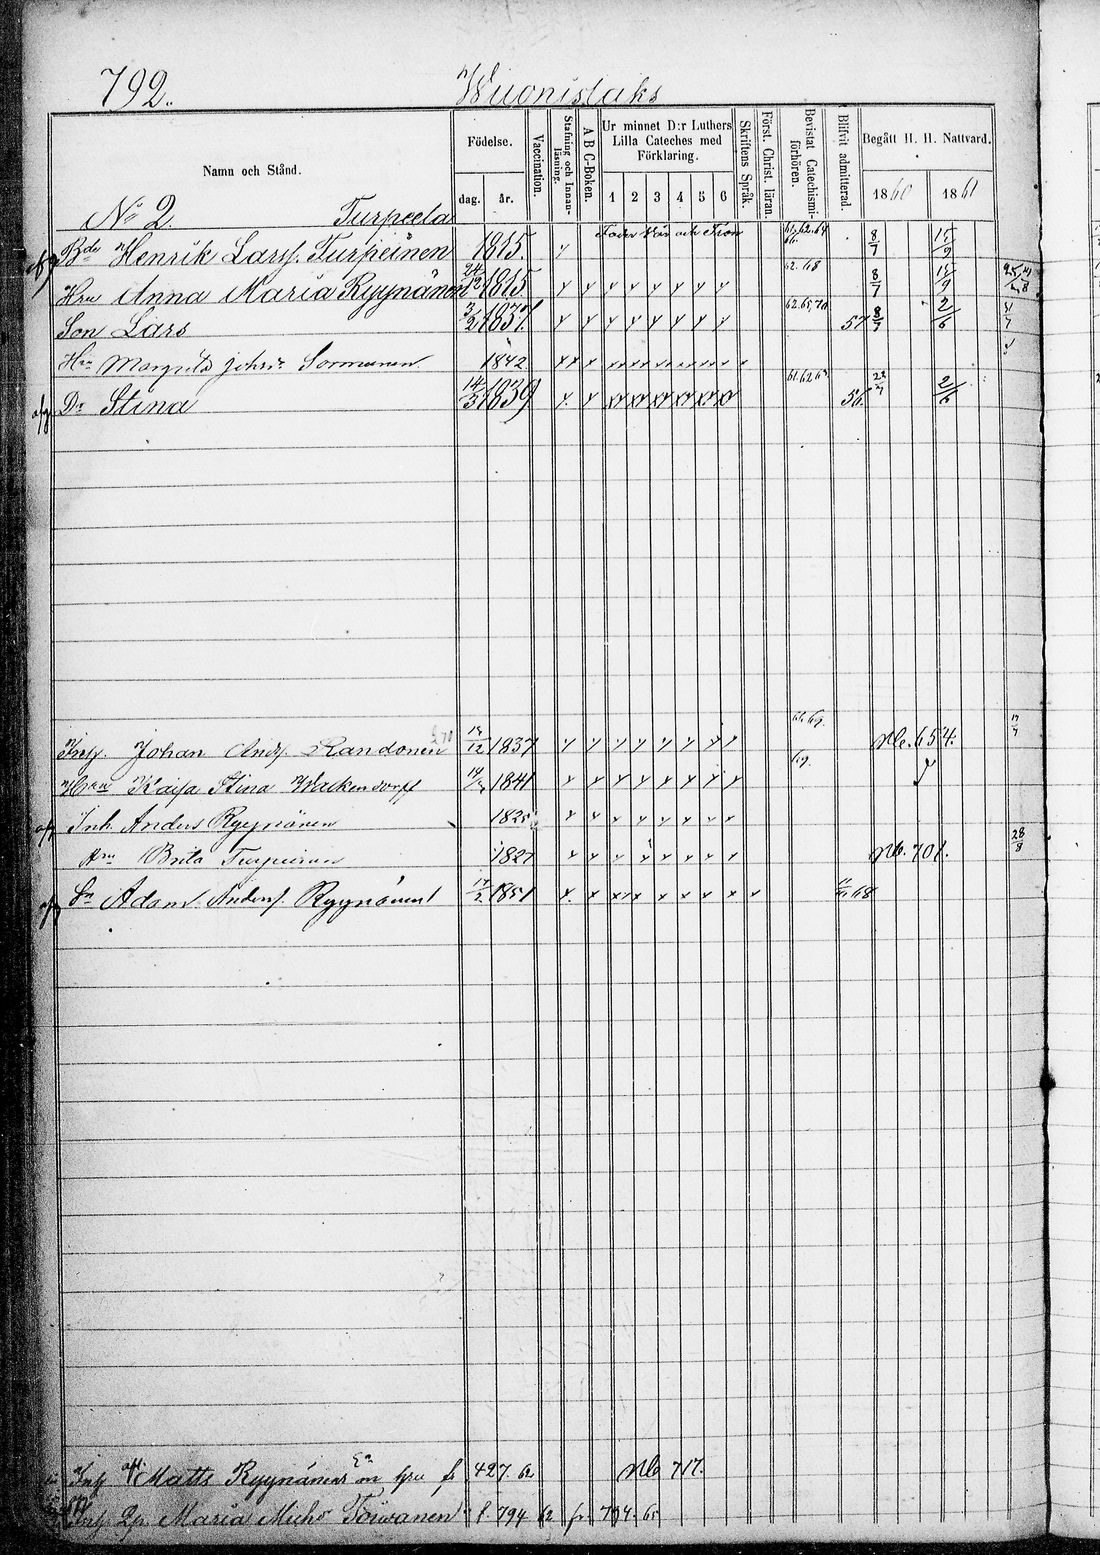 792. Wuonislaks
Namn och Stånd. Födelse. Vaccination. Stafning och Innanläsning. A B C-Boken. Ur minnet D:r Luthers Lilla Cateches med Förklaring. Skriftens Språk. Först. Christ. läran. Bevistat Catechismiförhören. Blifvit admitterad. Begått H. H. Nattvard.
dag. år. 1 2 3 4 5 6 1860 1861
No 2. Turpeela
Bde Henrik Larsf. Turpeinen 1815. Fader Vår och Tron 61. 62. 64 8/7 15/9
Hru Anna Maria Ryynänen 24/12 1815 62. 68 8/7 15/9
Son Lars 3/2 1837. 62. 65. 70 57 8/7 2/6
Hru Margreta Johsdr Sormunen 1842
Dr Stina 14/3 1839 61. 62 63. 56. 22/7 2/6
Inh. Johan Andf. Randonen 12 1837 Nb. 654.
Hru Kaisa Stina Wackendorff 1841 69.
Inh. Anders Ryynänen 1825
Hru Brita Turpeinen 1827 Nb. 701. 28/8
Sn Adam Andersf. Ryynänen 17/2 1851 68
Inh Matts Ryynänen hru fr. 427. 62 Nb 717.
Inh Maria Michsdr Törwänen f. 794 62 fr. 794. 65